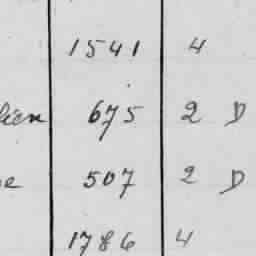 1541 4
675 2 D
507 2 D
1786 4